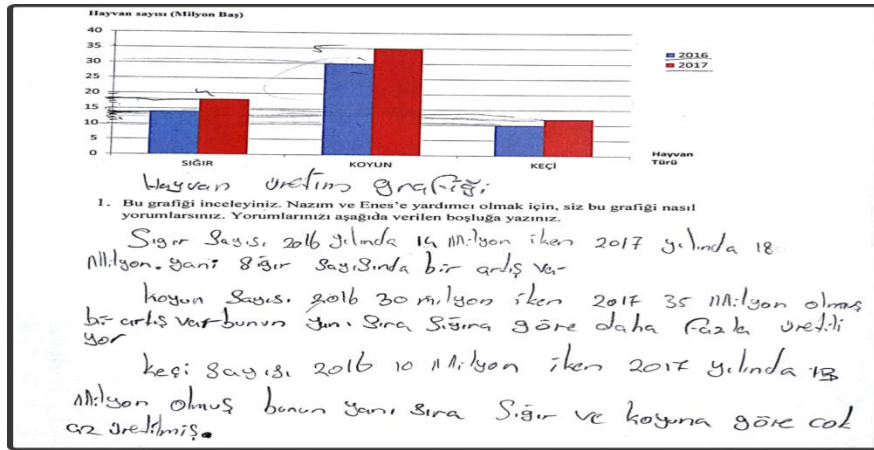 Hayvan sayısı (Milyon Baş)
40
35
30
25
20
15
10
5
0
5
4
2016
2017
SIĞIR
KOYUN
KEÇİ
Hayvan
Türü
Hayvan üretim grafiği
1. Bu grafiği inceleyiniz. Nazım ve Enes'e yardımcı olmak için, siz bu grafiği nasıl
yorumlarsınız. Yorumlarınızı aşağıda verilen boşluğa yazınız.
Sığır Sayısı 2016 yılında 14 Milyon iken 2017 yılında 18
Milyon. yani Sığır Sayısında bir artış var
koyun Sayısı 2016 30 milyon iken 2017 35 Milyon olmuş
bir artış var bunun yanı Sıra Sığıra göre daha fazla üretili
yor
keçi Sayısı 2016 10 Milyon iken 2017 yılında 13
Milyon olmuş bunun yanı sıra Sığır ve koyuna göre cok
az üretilmiş.